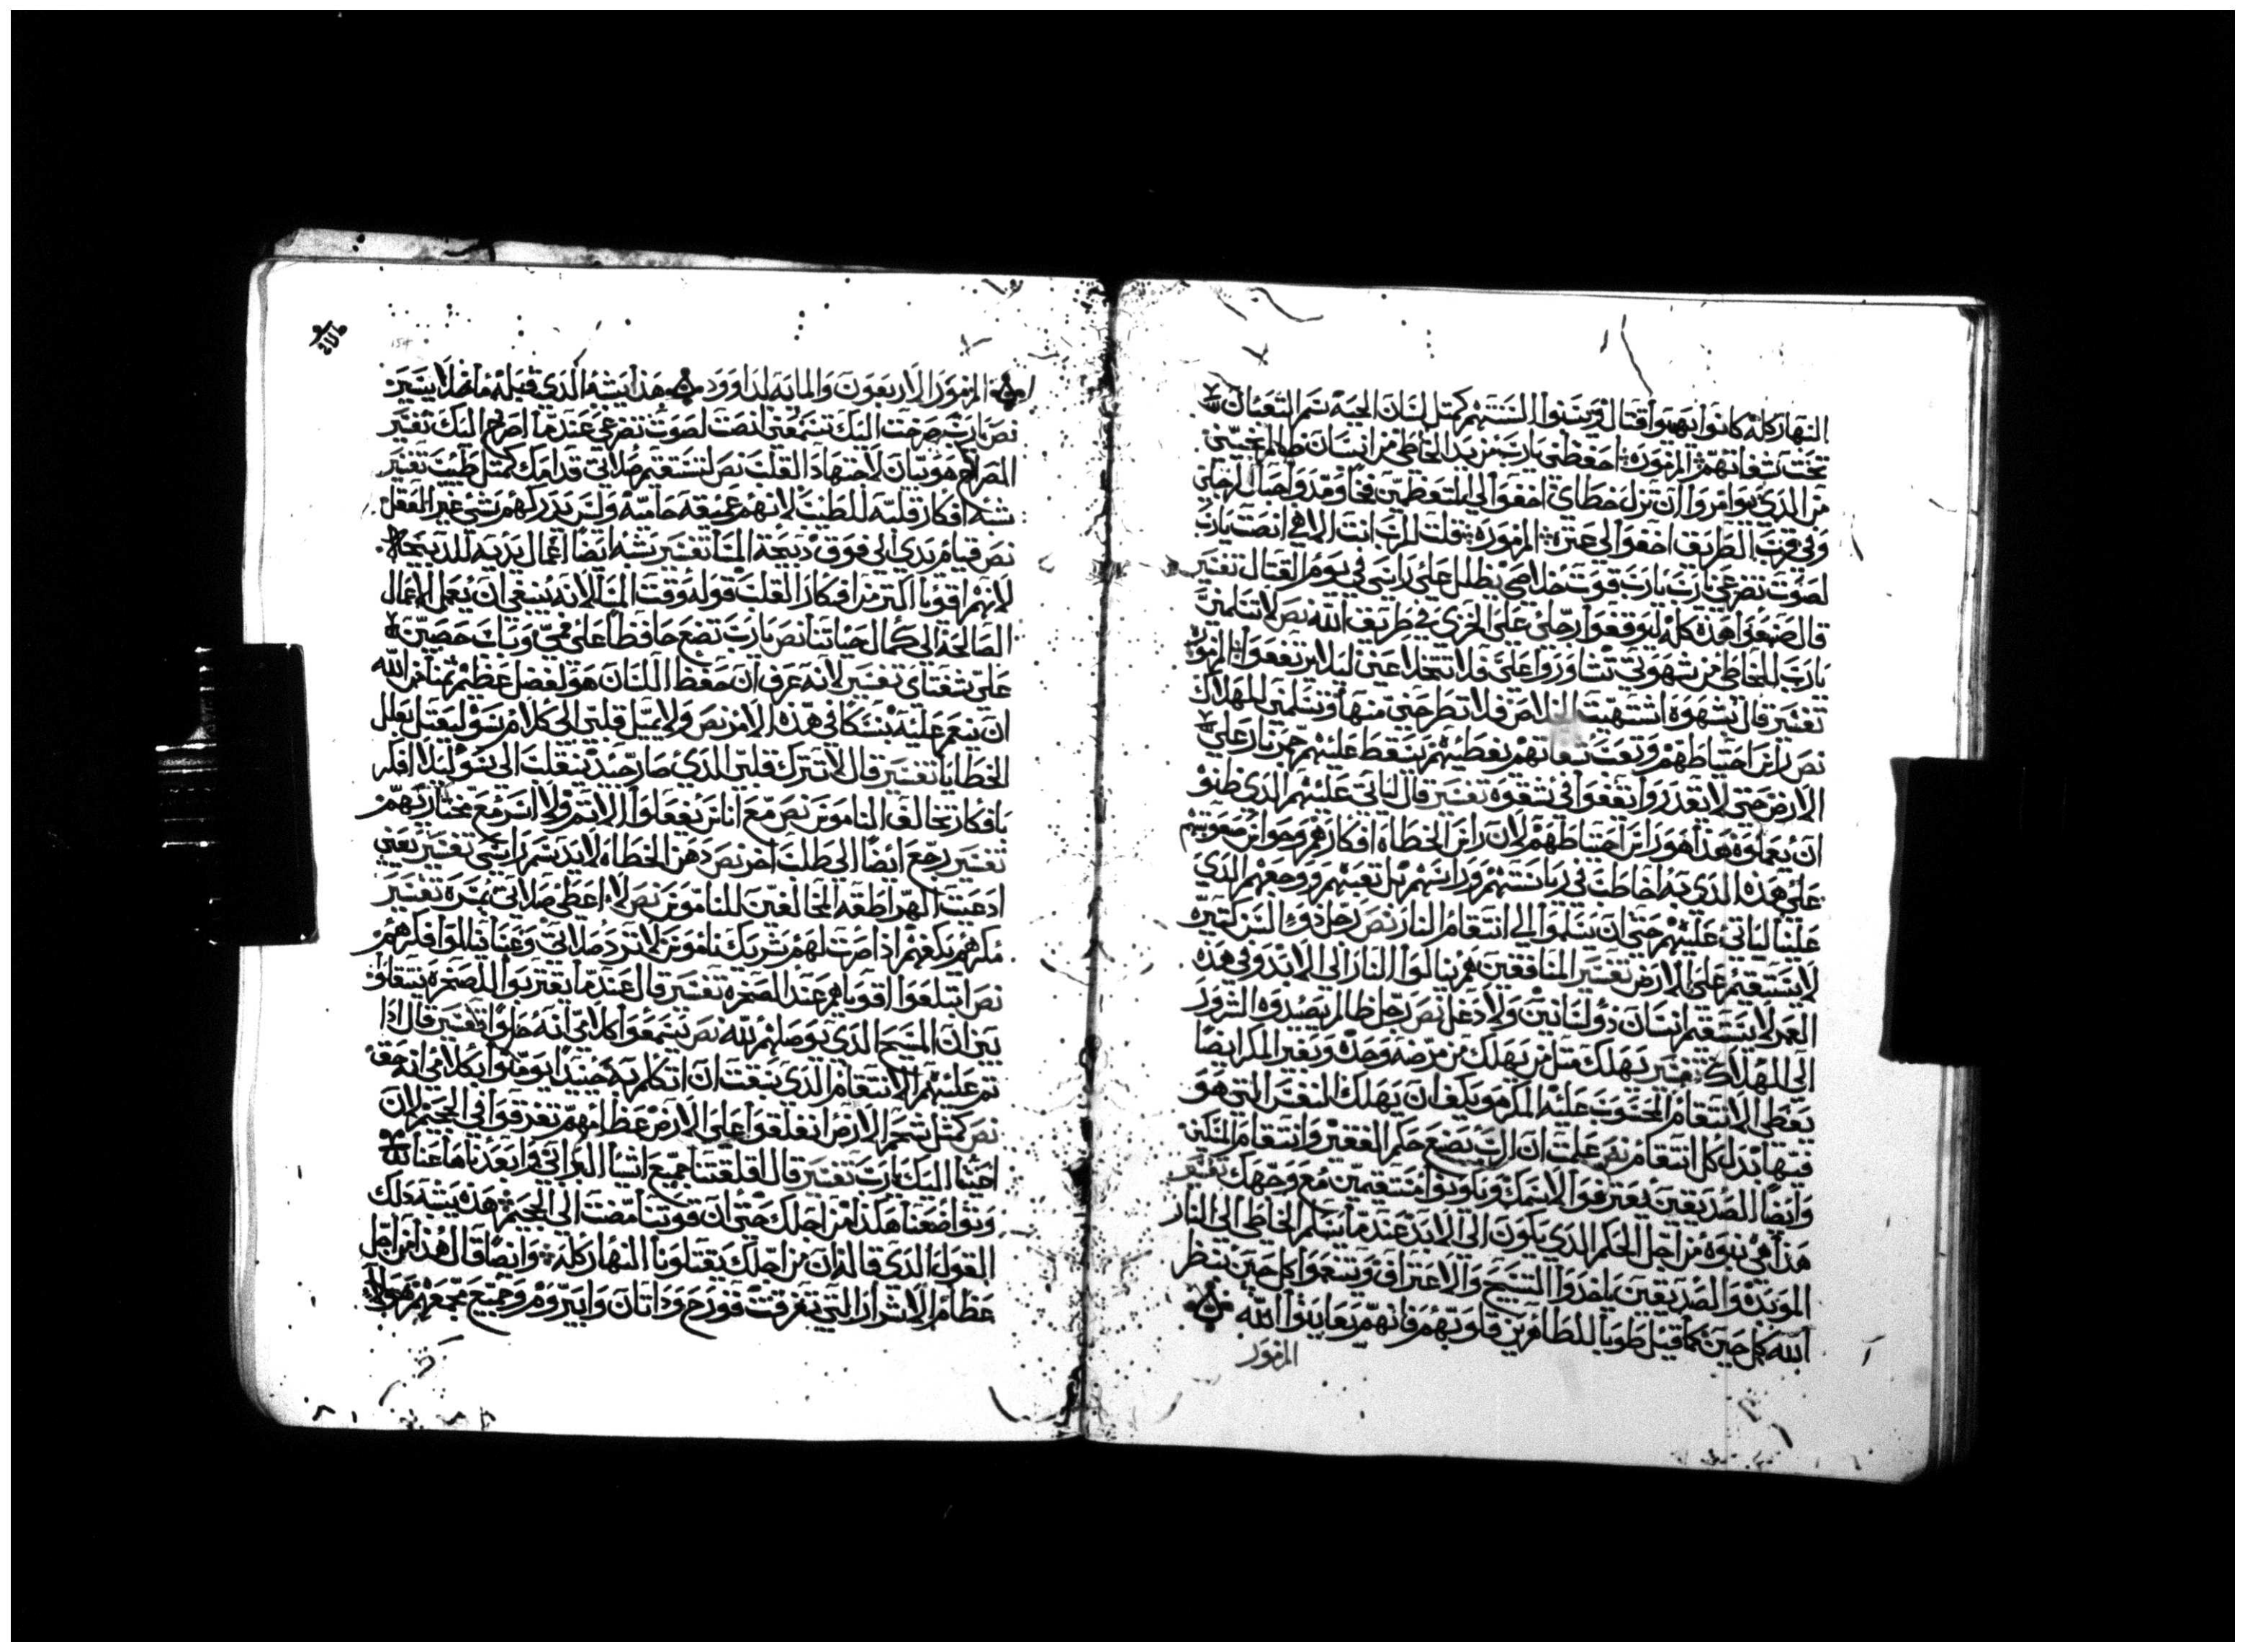 النهار كله كانوا يهيوا قتال ويسنوا السنتهم كمتل لسان الحية سم التعبان
تحت شفاتهم المزمور احفظني يارب من يد الخاطي من انسان ظالم نجيني
من الذي توامروا ان تزل خطاي اخفوا لي المتعظمين فخا ومدوا حبال لرجلي
وفي قرب الطريق اخفوا لي عترة المزمور قلت للرب انت الاهي انصت يارب
لصوت تضرعي رب يارب قوت خلاصي يظلل على راسي في يوم القتال تفسير
قال صنعوا هذه كله ليوقفوا رجلي على الخزي في طريق الله نص لا تسلمني
يارب للخاطي من شهوتي تشاوروا علي فلا تتخلا عني ليلا يرتفعوا المزمور
تفسير قال بشهوة اشتهيت الخلاص فلا تطرحني منها وتسلمني للهلاك
نص راس احتياطهم وتعب شفاتهم يغطيهم يسقط عليهم جمر نار على
الارض حتى لا يقدروا يقفوا في شقوة تفسير قال لياتي عليهم الذي ظنوا
ان يعملوه هذا هو راس احتياطهم لان راس الخطاة افكارهم وحواس
على هذه الذي به احاطت في رياستهم وراسهم بل تعبهم ووجعهم الذي
علينا لياتي عليهم حتى ان يسلموا الي انتقام النار نص رجل ذو السن كتيره
لا يستقيم على الارض تفسير المنافقين هم ينالوا النار الى الابد وفي هذه
العمر لا يستقيم انسان ذو لسانين ولا دغل نص رجل ظالم يصيدوه الشرور
الى الهلاك تفسير يهلك متل من يهلك من مرضه وحده وبغير المكر ايضا
يعطى الانتقام المحسوب عليه المكر هو يكف ان يهلك النفس التي هو
فيها بدل كل انتقام نص علمت ان الرب يصنع حكم الفقير وانتقام المسكين
وايضا الصديقين يعترفوا لاسمك ويكونوا مستقيمين مع وجهك تفسير
هذا هي نبوة من اجل الحكم الذي يكون الى الابد عندما يسلم الخاطي الى النار
الموبده والصديقين ياخدوا التسبيح والاعتراف ويتنعموا كل حين بنظر
الله كل حين كما قيل طوبا للطاهرين قلوبهم فانهم يعاينوا الله
المزمور
المزمور الاربعون والمايه لداوود هذا يشبه الذي قبله ما خلا يسير
نص يارب صرخت اليك تسمعني انصت لصوت تضرعي عندما اصرخ اليك تفسير
الصراخ هو بيان لاجتهاد القلب نص لتستقيم صلاتي قدامك كمتل طيب تفسير
شبه افكار قلبه للطيب لانهم عميقه حاميه وليس يدركهم شي غير العقل
نص قيام يدي الى فوق دبيحة المسا تفسير يشبه ايضا اعمال يديه للدبيحه
لانهم اقويا اكتر من افكار القلب قوله وقت المسا لانه ينبغي ان يعمل الاعمال
الصالحة الى كمال حياتنا نص يارب تضع حافظا على فمي وباب حصين
على شفتاي تفسير لانه عرف ان حفظ اللسان هو لفضل عظيم من الله
ان ينعم عليه بسكاني هذه الامر نص ولا تميل قلبي الى كلام سو ليعتل بعلل
الخطايا تفسير قال لا تترك قلبي الذي صار جيد ينقلب الى سو ليلا افكر
بافكار تخالف الناموس نص مع اناس يفعلوا الاتم ولا اشر مع مختاريهم
تفسير رجع ايضا الى طلب اخر نص دهن الخطاة لا يدسم راسي تفسير يعني
ادعيت الهراطقه المخالفين للناموس نص لا اعطى صلاتي بمسرة تفسير
مكرهم يكفهم اذا صرت لهم شريك ناموس لا ترد صلاتي وعنا قبلوا فكرهم
نص ابتلعوا اقوياهم عند الصخره تفسير قال عندما يقتربوا للصخره يبتلعوا
بين ان المسيح الذي يوصلهم لله نص تسمعوا كلامي انه حلوا تفسير قال اذا
تم عليهم الانتقام الذي سبقت ان اتكلم به حينيدا يومنوا بكلامي انه حق
نص كمتل شحم الارض انفلقوا على الارض عظامهم تفرقوا في الجحيم لان
اعيننا اليك يارب تفسير قال اقلقتنا جميع اشيا البراني وابعدناها عنا
وتواضعنا هكذا من اجلك حتى ان قوتنا مضت الى الجحيم هذه يشبه ذلك
القول الذي قال ان من اجلك يقتلونا النهار كله وايضا قال هذا من اجل
عظام الاشرار التي تفرقت قورح وداتان وابيروم وجميع مجمعهم هولاء